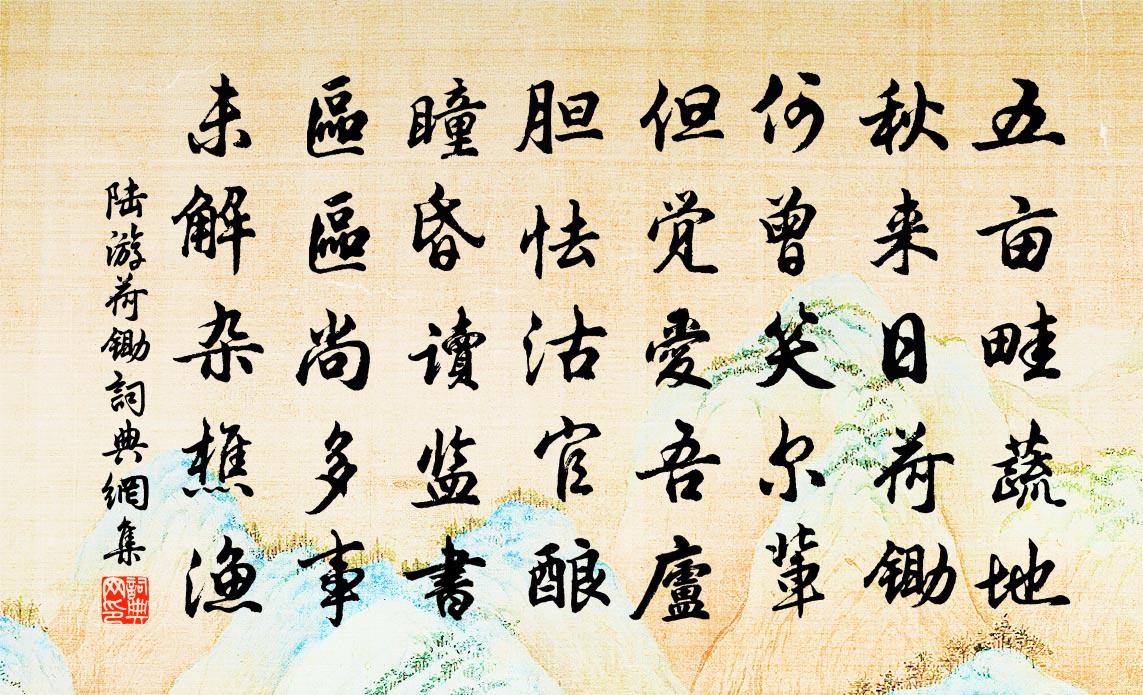 五亩畦蔬地
秋来日荷锄
何曾笑尔辈
但觉爱吾廬
胆怯沽官酿
瞳昏读监书
區區尚多事
未解杂樵渔
陆游荷锄詞典網集
詞典网印